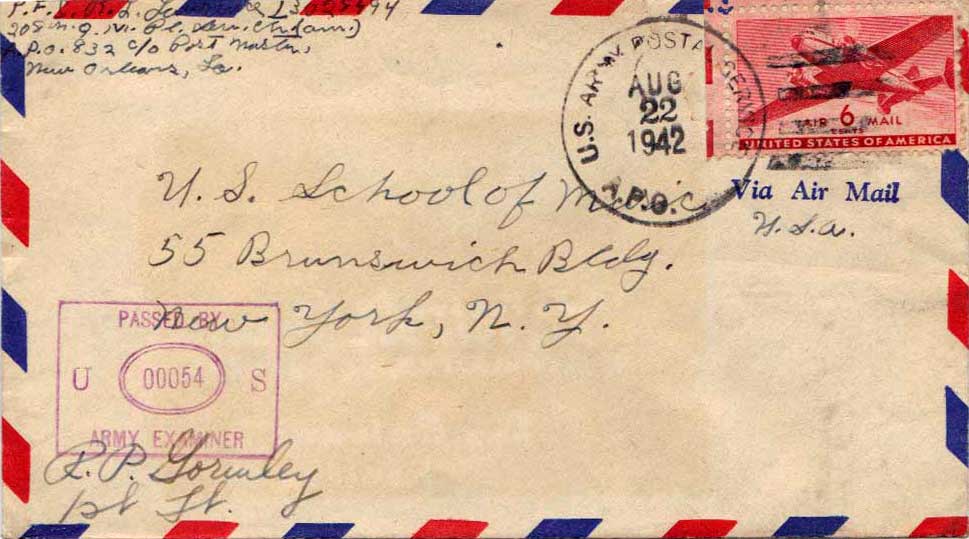 208 Q. M.
A.P.O. 832 c/o Post Master,
New Orleans, La.
U.S. ARMY POSTAL SERVICE
AUG
22
1942
A.P.O.
AIR 6 MAIL
CENTS
UNITED STATES OF AMERICA
Via Air Mail
U.S.A.
U. S. School of Music
55 Brunswick Bldg.
New York, N. Y.
PASSED BY
U 00054 S
ARMY EXAMINER
R. P. Gormley
1st Lt.